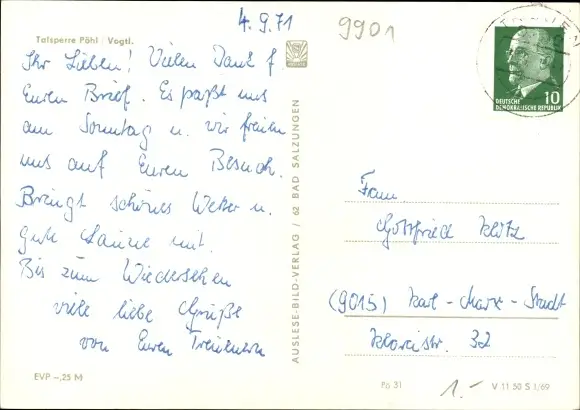 4.9.71
9901
Talsperre Pöhl / Vogtl.
Ihr Lieben! Vielen Dank f
Euren Brief. Es paßt uns
am Sonntag u. wir freuen
uns auf Euren Besuch.
Bringt schönes Wetter u.
gute Laune mit.
Bis zum Wiedersehen
viele liebe Grüße
von Euren
EVP –,25 M
AUSLESE-BILD-VERLAG / 62 BAD SALZUNGEN
10
DEUTSCHE
DEMOKRATISCHE REPUBLIK
Fam
Gottfried Klötz
(9015) Karl-Marx-Stadt
32
Po 31
1.-
V 11 50 S 1/69